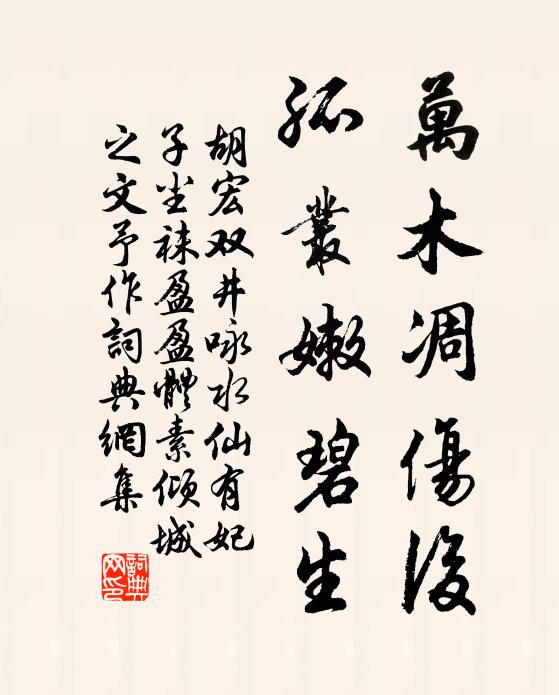 萬木凋傷後
孤叢嫩碧生
胡宏双井咏水仙有妃
子尘袜盈盈體素倾城
之文予作詞典網集
詞典
网印